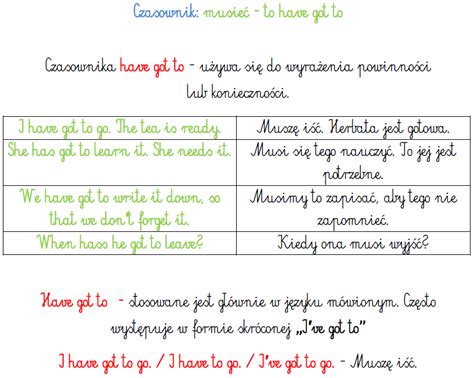 Czasownik: musieć - to have got to
Czasownika have got to - używa się do wyrażenia powinności
lub konieczności.
I have got to go. The tea is ready. Muszę iść. Herbata jest gotowa.
She has got to learn it. She needs it. Musi się tego nauczyć. To jej jest
potrzebne.
We have got to write it down, so Musimy to zapisać, aby tego nie
that we don't forget it. zapomnieć.
When hass he got to leave? Kiedy ona musi wyjść?
Have got to - stosowane jest głównie w języku mówionym. Często
występuje w formie skróconej „I've got to”
I have got to go. / I have to go. / I've got to go. - Muszę iść.